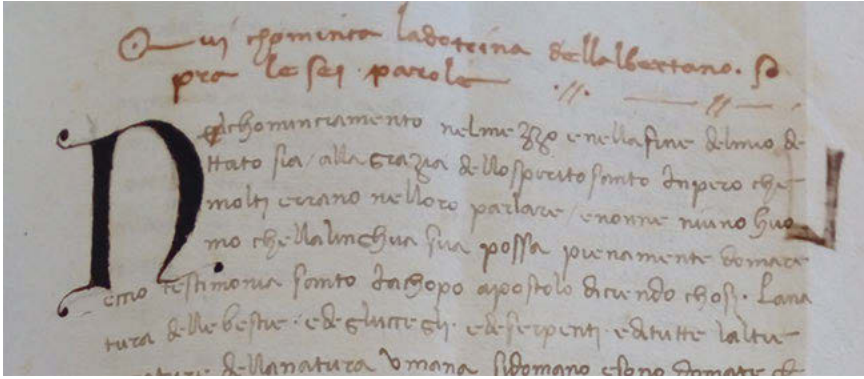 Qui chomincia ladotrina dellalbertano. so
pra le sei parole
Nelchominciamento nelmezzo enellafine delmio de
ttato sia / alla grazia dellosperito santo Inpero che
molti errano nelloro parlare / enonne niuno huo
mo chellalinghua sua possa pienamente domare
eccio testimonia santo Jachopo apostolo dicendo chosi. Lana
tura dellebestie. edegluccegli. edeserpenti. editutte laltre
nature dellanatura umana sidomano esono domate